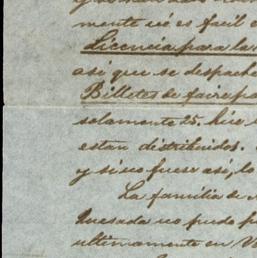 mente no es facil
Licencia para la
así que se despache
Billetes de
solamente 25.
estan distribuidos.
y si no fuese así, lo
La familia de
Quesada no pudo
ultimamente en